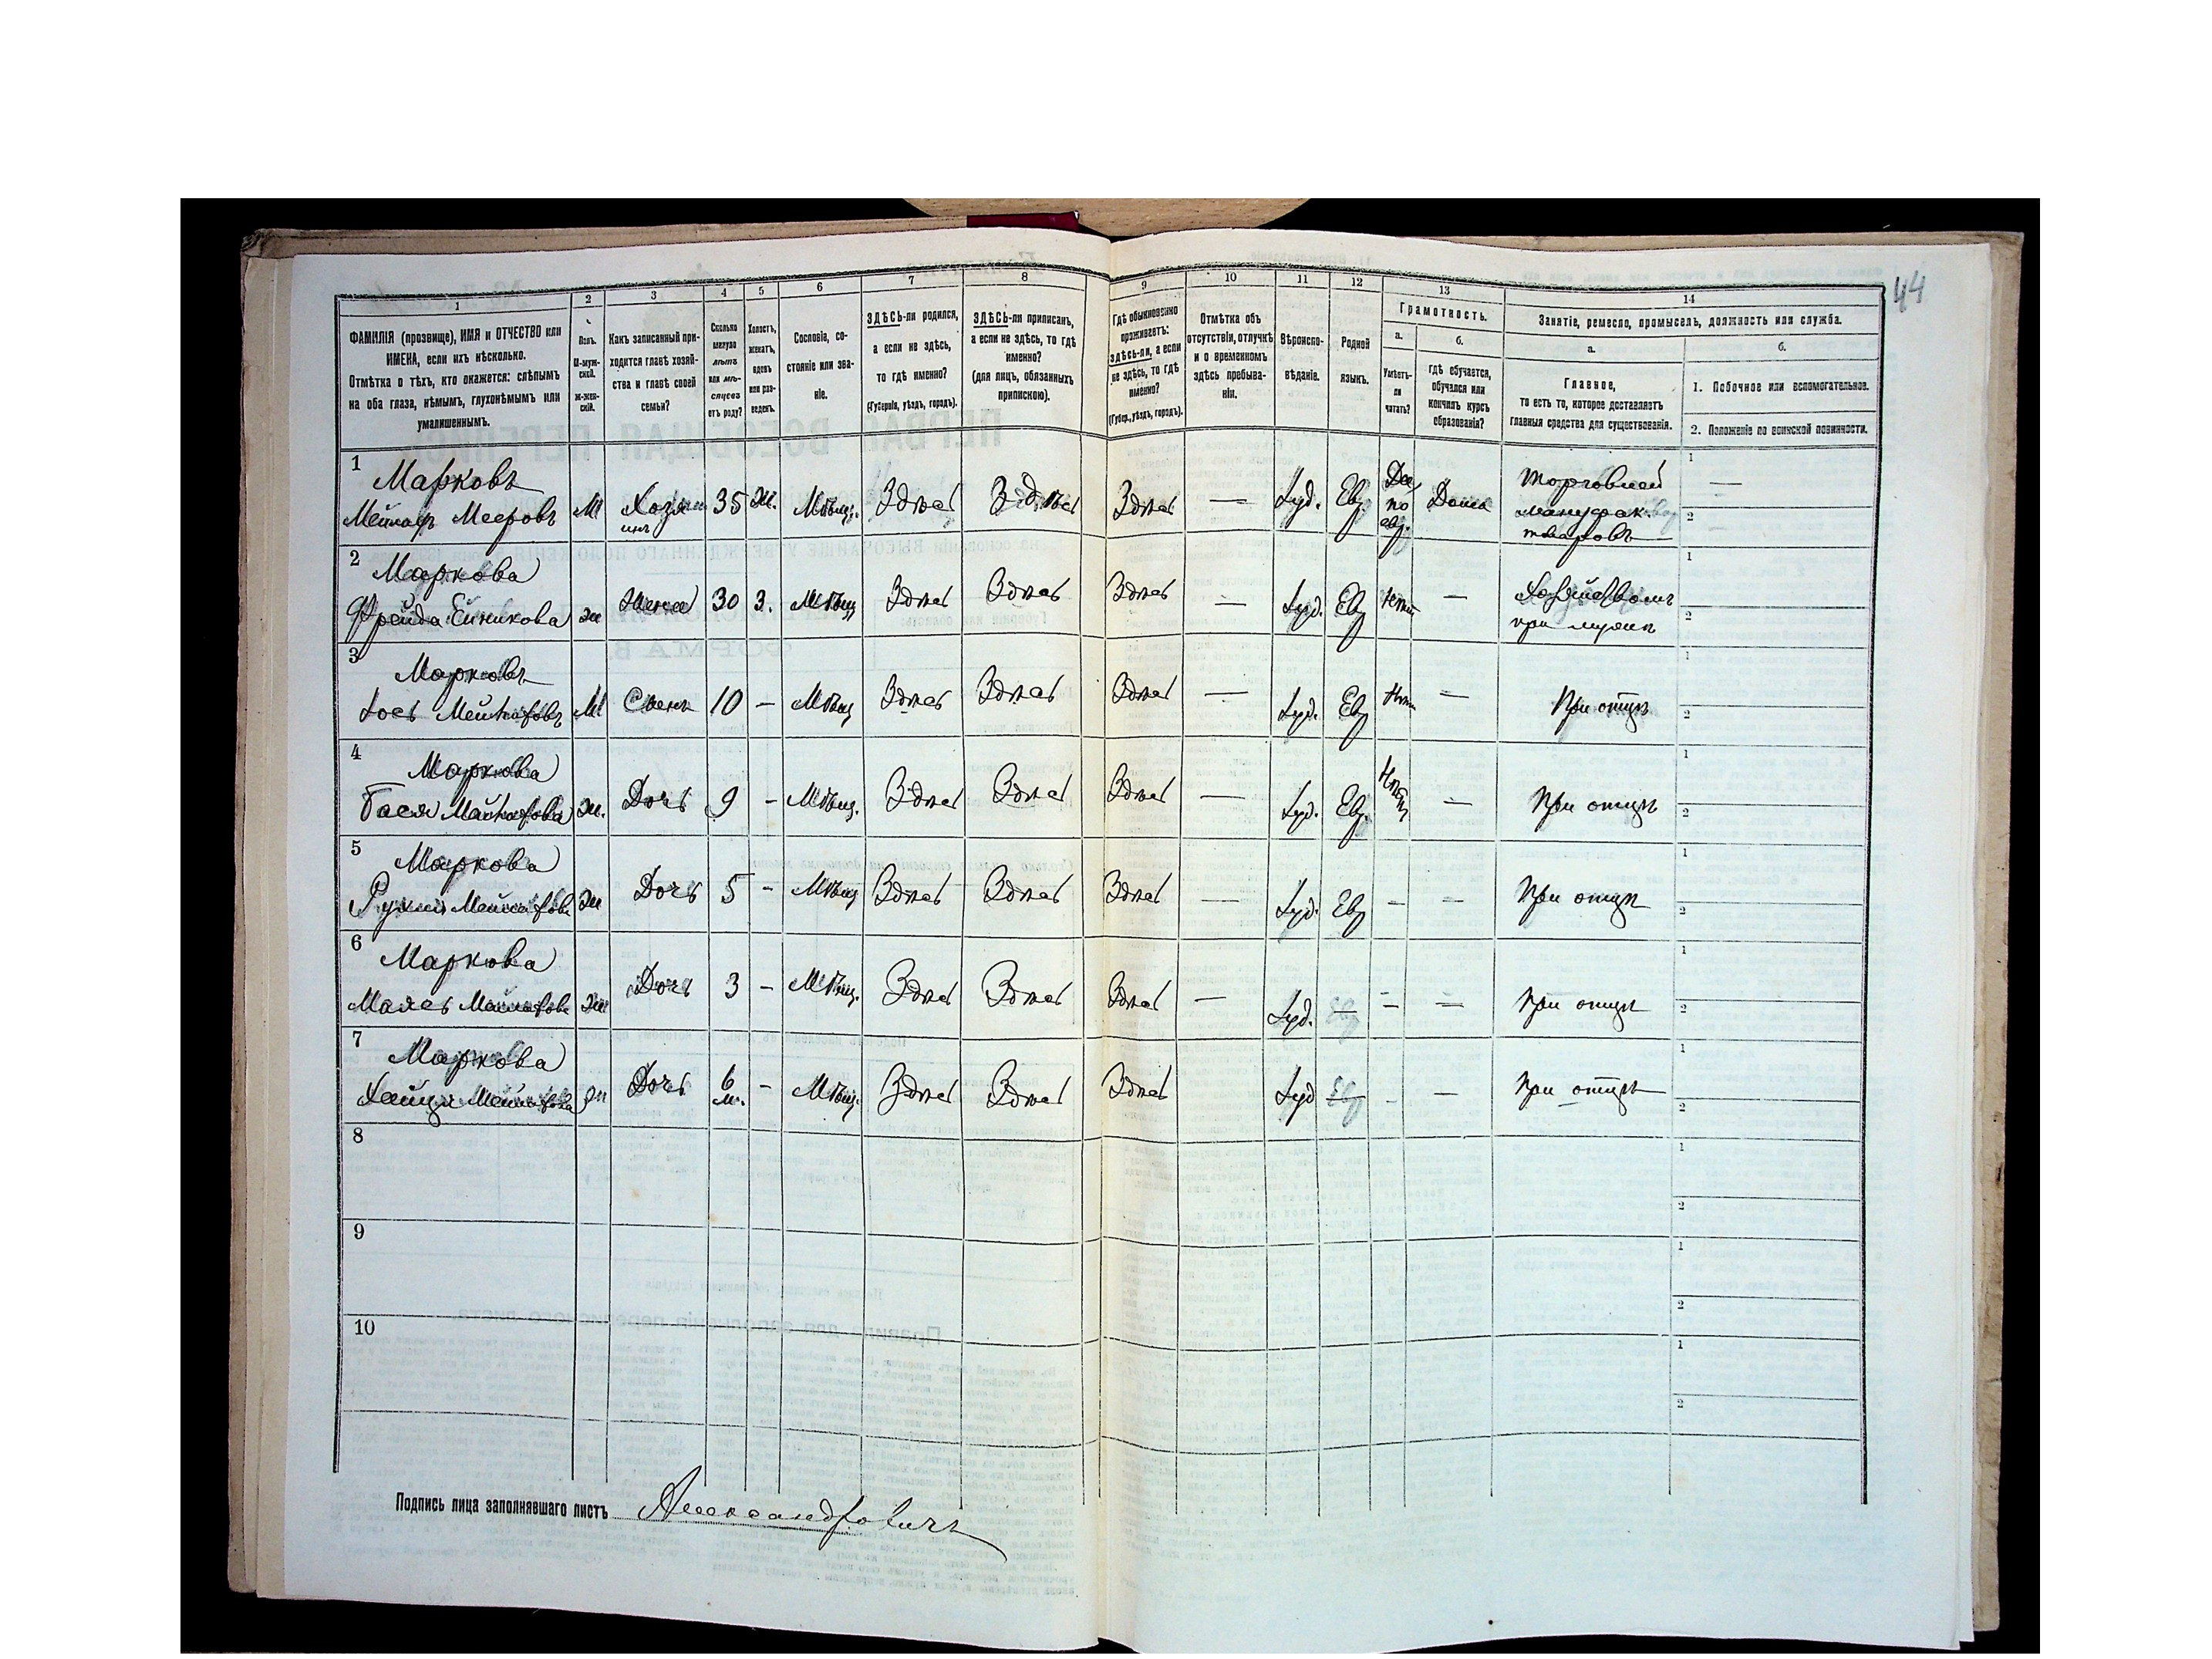 44
1 2 3 4 5 6 7 8 9 10 11 12 13 14
ФАМИЛІЯ (прозвище), ИМЯ и ОТЧЕСТВО или ИМЕНА, если ихъ нѣсколько.
Отмѣтка о тѣхъ, кто окажется: слѣпымъ на оба глаза, нѣмымъ, глухонѣмымъ или умалишеннымъ.
Полъ. М-мужской. Ж-женскій.
Какъ записанный приходится главѣ хозяйства и главѣ своей семьи?
Сколько минуло лѣтъ или мѣсяцевъ отъ роду?
Холостъ, женатъ, вдовъ или разведенъ.
Сословіе, состояніе или званіе.
ЗДѢСЬ-ли родился, а если не здѣсь, то гдѣ именно?
(Губернія, уѣздъ, городъ).
ЗДѢСЬ-ли приписанъ, а если не здѣсь, то гдѣ именно?
(для лицъ, обязанныхъ припискою).
Гдѣ обыкновенно проживаетъ: здѣсь-ли, а если не здѣсь, то гдѣ именно?
(Губер., уѣздъ, городъ).
Отмѣтка объ отсутствіи, отлучкѣ и о временномъ здѣсь пребываніи.
Вѣроисповѣданіе.
Родной языкъ.
Грамотность.
а. Умѣетъ-ли читать?
б. гдѣ обучается, обучался или кончилъ курсъ образованія?
Занятіе, ремесло, промыселъ, должность или служба.
а. Главное, то есть то, которое доставляетъ главныя средства для существованія.
б.
1. Побочное или вспомогательное.
2. Положеніе по воинской повинности.
1 Марковъ М Хозяинъ 35 Ж. Мѣщ. Здѣсь Здѣсь Здѣсь — Іуд. Евр. Да по евр. Дома Торговлей мануфак. товаровъ 1 — 2
2 Маркова Фрейда ж Жена 30 З. Мѣщ Здѣсь Здѣсь Здѣсь — Іуд. Евр Нѣтъ — Хозяйствомъ при мужѣ 1 2
3 Марковъ М Сынъ 10 — Мѣщ Здѣсь Здѣсь Здѣсь — Іуд. Евр Нѣтъ — При отцѣ 1 2
4 Маркова Бася ж. Дочь 9 - Мѣщ. Здѣсь Здѣсь Здѣсь — Іуд. Евр. Нѣтъ — При отцѣ 1 2
5 Маркова ж Дочь 5 - Мѣщ Здѣсь Здѣсь Здѣсь — Іуд. Евр - - При отцѣ 1 2
6 Маркова ж Дочь 3 - Мѣщ. Здѣсь Здѣсь Здѣсь — Іуд. Евр - — При отцѣ 1 2
7 Маркова ж Дочь 6 м. - Мѣщ. Здѣсь Здѣсь Здѣсь Іуд Евр - — При отцѣ 1 2
8 1 2
9 1 2
10 1 2
Подпись лица заполнявшаго листъ Александровичъ